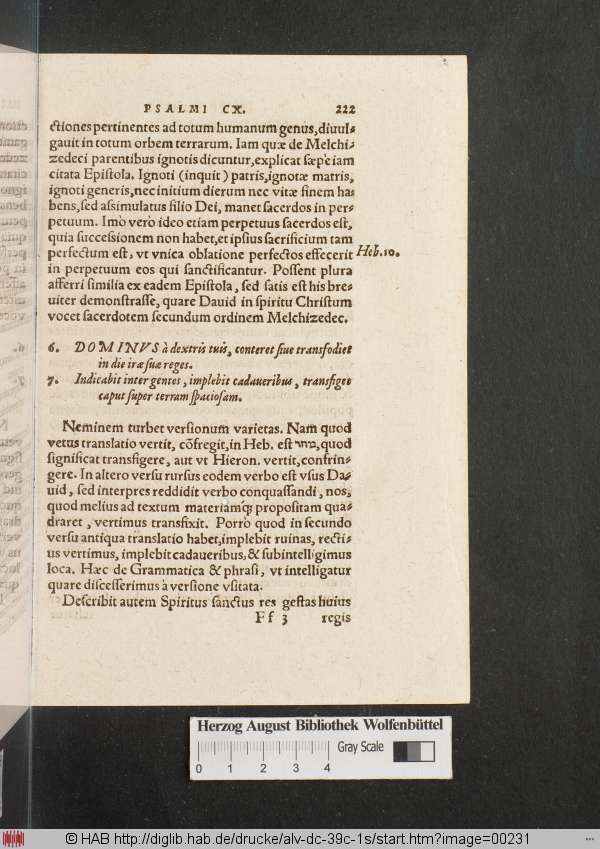 PSALMI CX. 222
ctiones pertinentes ad totum humanum genus, diuul-
gauit in totum orbem terrarum. Iam quæ de Melchi-
zedeci parentibus ignotis dicuntur, explicat sæpe iam
citata Epistola. Ignoti (inquit) patris, ignotæ matris,
ignoti generis, nec initium dierum nec vitæ finem ha-
bens, sed assimulatus filio Dei, manet sacerdos in per-
petuum. Imò verò ideo etiam perpetuus sacerdos est,
quia successionem non habet, et ipsius sacrificium tam
perfectum est, vt vnica oblatione perfectos effecerit Heb. 10.
in perpetuum eos qui sanctificantur. Possent plura
afferri similia ex eadem Epistola, sed satis est his bre-
uiter demonstrasse, quare Dauid in spiritu Christum
vocet sacerdotem secundum ordinem Melchizedec.
6. DOMINVS à dextris tuis, conteret siue transfodiet
in die iræ suæ reges.
7. Indicabit inter gentes, implebit cadaueribus, transfiget
caput super terram spaciosam.
Neminem turbet versionum varietas. Nam quod
vetus translatio vertit, cōfregit, in Heb. est מחץ, quod
significat transfigere, aut vt Hieron. vertit, confrin-
gere. In altero versu rursus eodem verbo est vsus Da-
uid, sed interpres reddidit verbo conquassandi, nos,
quod melius ad textum materiamq; propositam qua-
draret, vertimus transfixit. Porrò quod in secundo
versu antiqua translatio habet, implebit ruinas, recti-
us vertimus, implebit cadaueribus, & subintelligimus
loca. Hæc de Grammatica & phrasi, vt intelligatur
quare discesserimus à versione vsitata.
Describit autem Spiritus sanctus res gestas huius
Ff 3 regis
Herzog August Bibliothek Wolfenbüttel
Gray Scale
0 1 2 3 4
© HAB http://diglib.hab.de/drucke/alv-dc-39c-1s/start.htm?image=00231